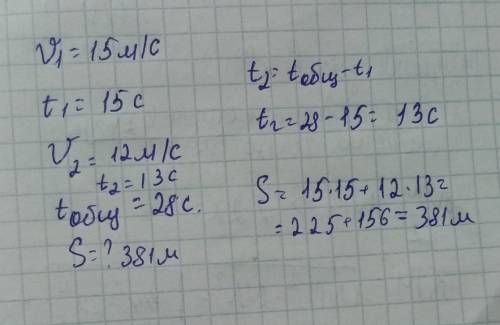 V₁ = 15 м/с
t₁ = 15 с
V₂ = 12 м/с
t₂ = 13 с
tобщ = 28 с.
S = ? 381 м
t₂ = tобщ - t₁
t₂ = 28 - 15 = 13 с
S = 15·15 + 12·13 =
= 225 + 156 = 381 м